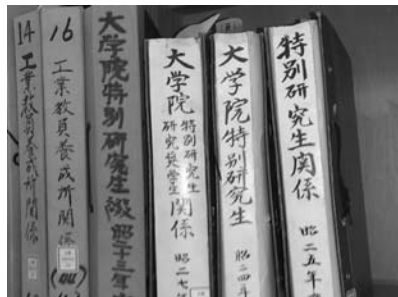 14
工業教員養成所関係
16
工業教員養成所関係
大学院特別研究生綴 昭二十三年
大学院
特別研究生
研究奨学生
関係
昭二七年
大学院特別研究生
昭二四年
特別研究生関係
昭二五年